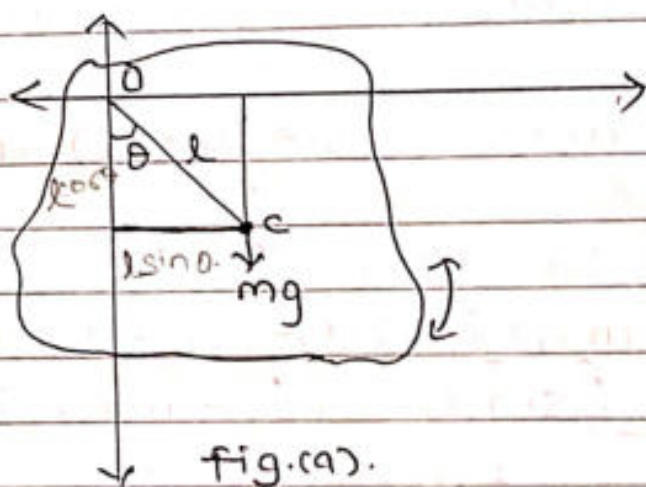 O
θ
l
l cosθ
C
l sin θ.
mg
fig.(a).